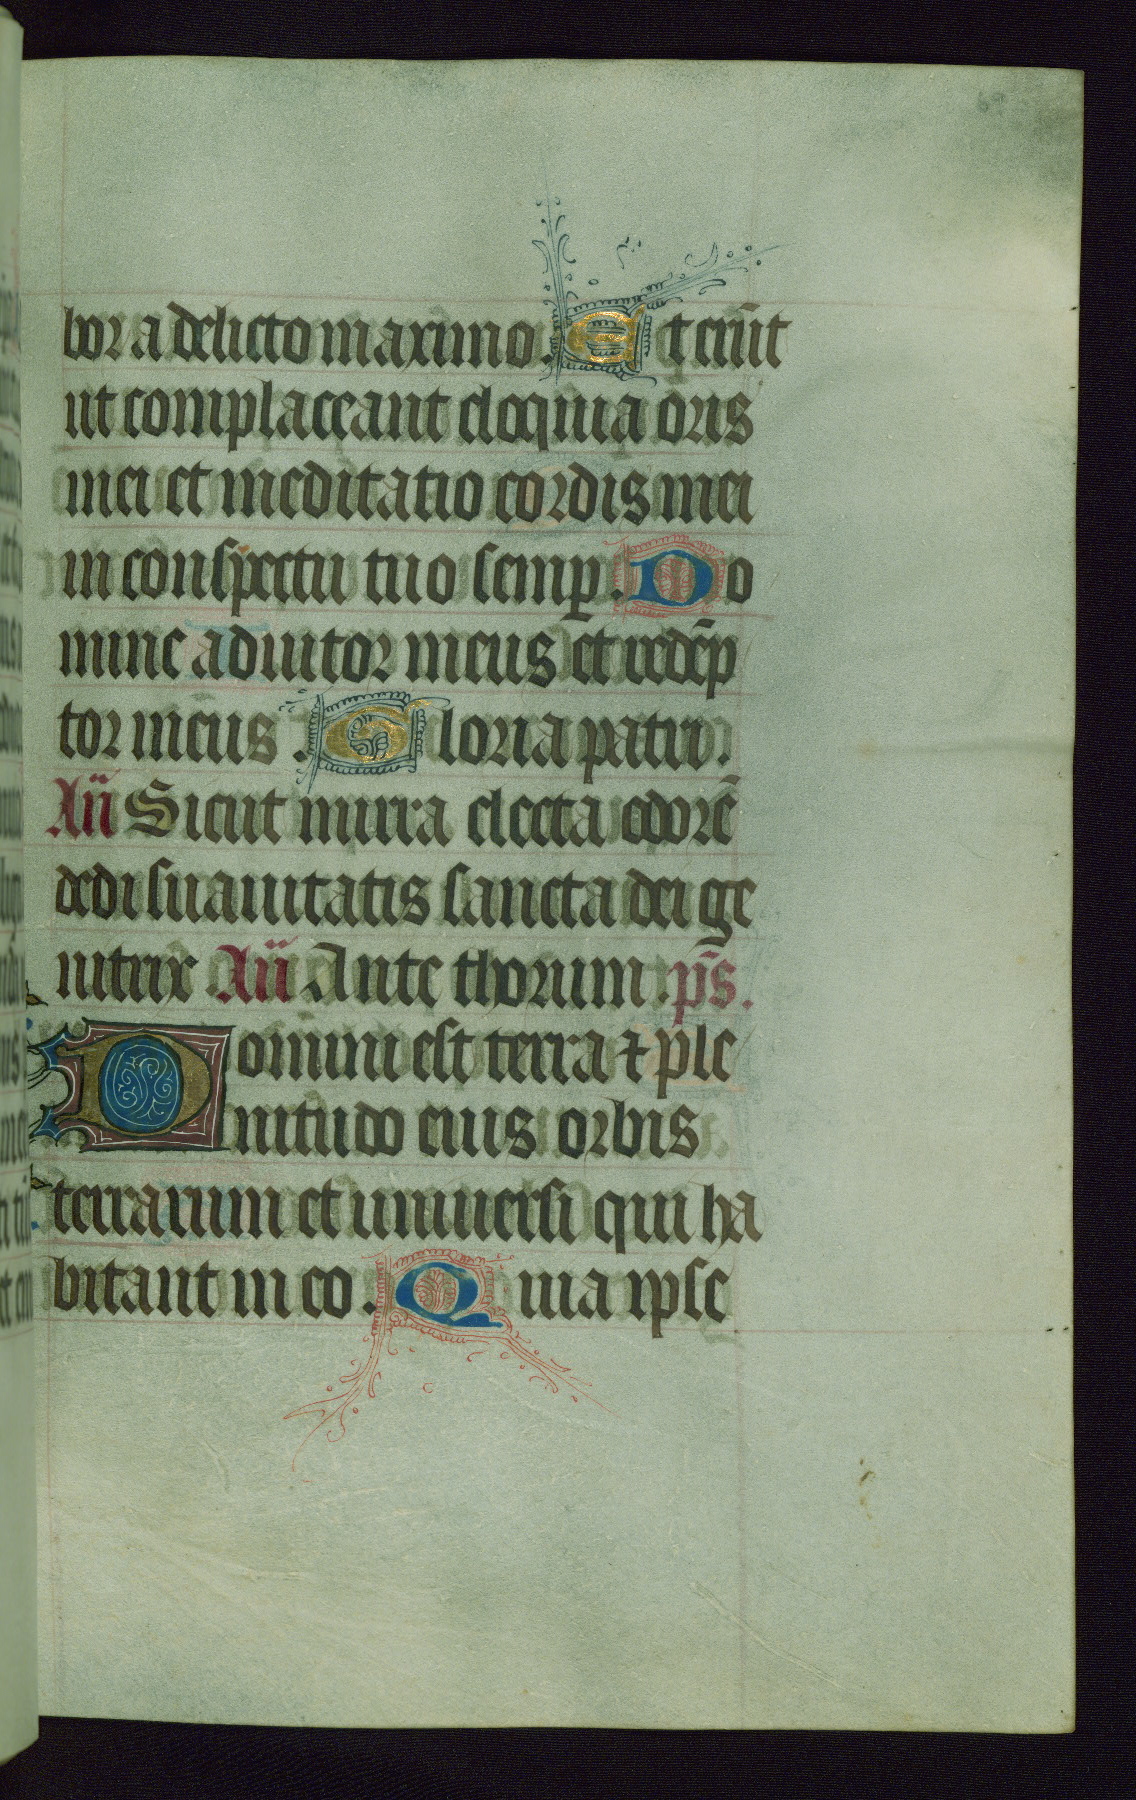 bor a delicto maximo. Et erūt
ut complaceant eloquia oris
mei et meditatio cordis mei
in conspectu tuo semꝑ. Do
mine adiutor meus et redēp
tor meus. Gloria patri.
Añ Sicut mirra electa odorē
dedi suauitatis sancta dei ge
nitrix Añ Ante thorum. p̄s.
Domini est terra ⁊ ple
nitudo eius orbis
terrarum et uniuersi qui ha
bitant in eo. Quia ipse